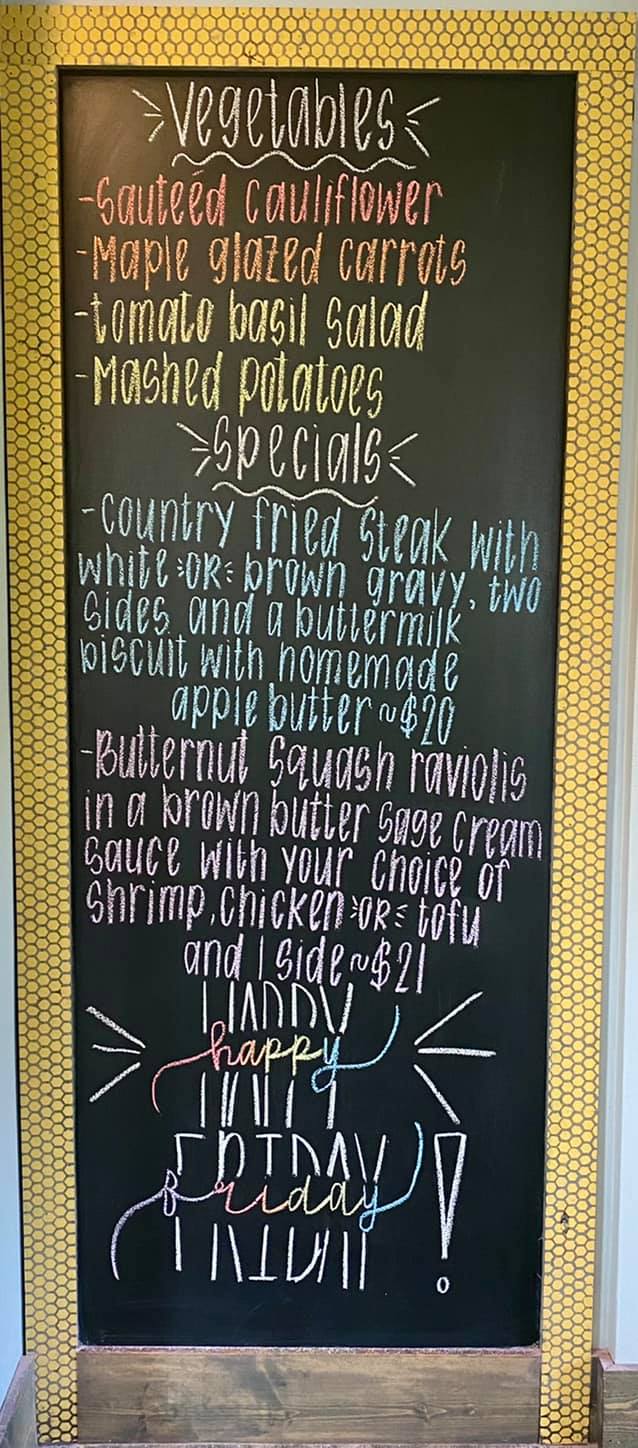 Vegetables
-Sauteéd cauliflower
-Maple glazed carrots
-tomato basil salad
-Mashed potatoes
Specials
-Country fried steak with
white OR brown gravy, two
sides and a buttermilk
biscuit with homemade
apple butter ~$20
-Butternut squash raviolis
in a brown butter sage cream
sauce with your choice of
shrimp, chicken OR tofu
and 1 side ~$21
HAPPY
happy
FRIDAY
friday!